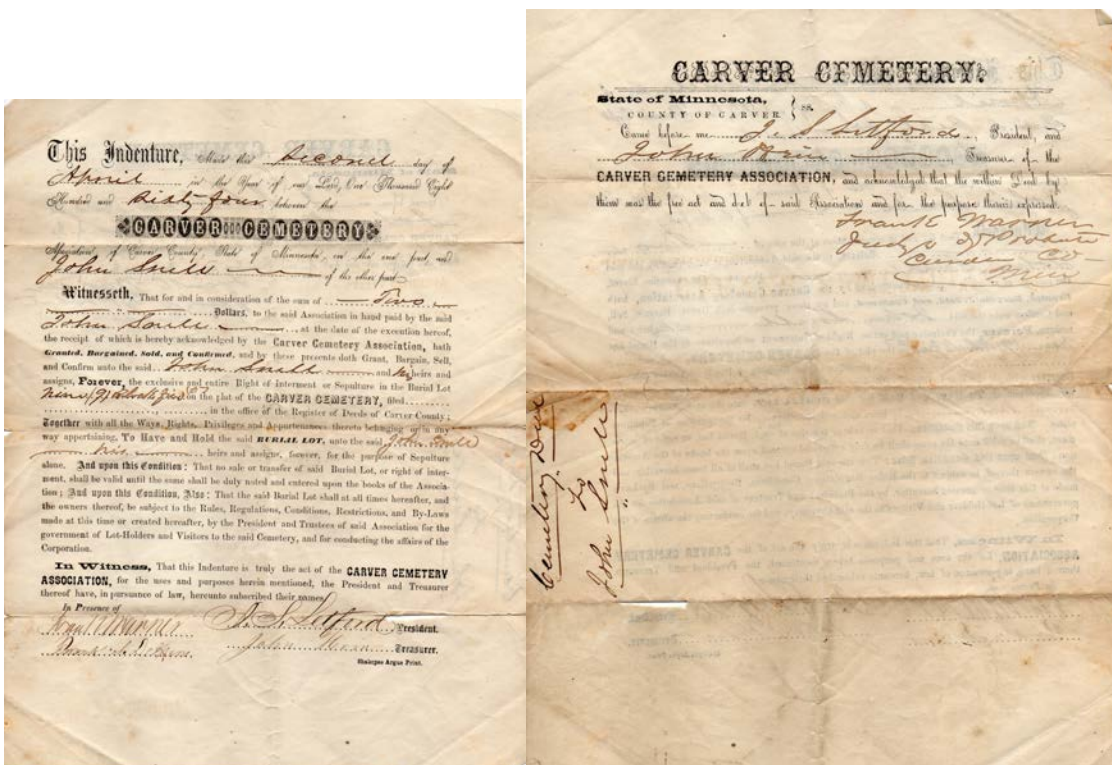 This Indenture, Made this Second day of
April in the Year of our Lord, One Thousand Eight
Hundred and Sixty four between the
CARVER CEMETERY
Association of Carver County, State of Minnesota, on the one part, and
John Snell of the other part
Witnesseth, That for and in consideration of the sum of Two
Dollars, to the said Association in hand paid by the said
John Snell at the date of the execution hereof,
the receipt of which is hereby acknowledged by the Carver Cemetery Association, hath
Granted, Bargained, Sold, and Confirmed, and by these presents doth Grant, Bargain, Sell,
and Confirm unto the said John Snell and his heirs and
assigns, Forever, the exclusive and entire Right of interment or Sepulture in the Burial Lot
nine (9) on the plat of the CARVER CEMETERY, filed
in the office of the Register of Deeds of Carver County;
Together with all the Ways, Rights, Privileges and Appurtenances thereto belonging or in any
way appertaining. To Have and Hold the said BURIAL LOT, unto the said John Snell
his heirs and assigns, forever, for the purpose of Sepulture
alone. And upon this Condition: That no sale or transfer of said Burial Lot, or right of inter-
ment, shall be valid until the same shall be duly noted and entered upon the books of the Associa-
tion; And upon this Condition, Also: That the said Burial Lot shall at all times hereafter, and
the owners thereof, be subject to the Rules, Regulations, Conditions, Restrictions, and By-Laws
made at this time or created hereafter, by the President and Trustees of said Association for the
government of Lot-Holders and Visitors to the said Cemetery, and for conducting the affairs of the
Corporation.
In Witness, That this Indenture is truly the act of the CARVER CEMETERY
ASSOCIATION, for the uses and purposes herein mentioned, the President and Treasurer
thereof have, in pursuance of law, hereunto subscribed their names.
In Presence of
Frank Warner J. S. Letford President.
John Treasurer.
Shakopee Argus Print.
CARVER CEMETERY.
State of Minnesota,
COUNTY OF CARVER. } ss.
Came before me J. S. Letford, President, and
John Treasurer of the
CARVER CEMETERY ASSOCIATION, and acknowledged that the within Deed by
them was the free act and deed of said Association and for the purpose therein expressed.
Frank Warner
Judge of Probate
Carver Co
Minn
Cemetery Deed
To
John Snell